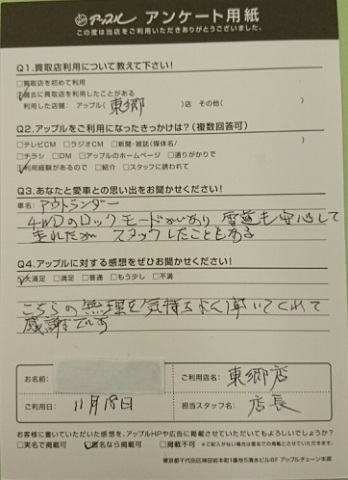 アップル アンケート用紙
この度は当店をご利用いただきありがとうございました。
Q1.買取店利用について教えて下さい!
□買取店を初めて利用
☑過去に買取店を利用したことがある
利用した店舗: アップル( 東郷 )店 その他( )
Q2.アップルをご利用になったきっかけは?(複数回答可)
□テレビCM □ラジオCM □新聞・雑誌(媒体名/ )
□チラシ □DM □アップルのホームページ □通りがかりで
☑利用経験があるので □紹介 □スタッフに誘われて
Q3.あなたと愛車との思い出をお聞かせください!
車名: アウトランダー
4WDのロックモードがあり 雪道も安心して
走れたが スタックしたこともある
Q4.アップルに対する感想をぜひお聞かせください!
☑大満足 □満足 □普通 □もう少し □不満
こちらの無理を気持ちよく聞いてくれて
感謝です
お名前:
ご利用店名: 東郷店
ご利用日: 11月18日
担当スタッフ名: 店長
お客様に書いていただいた感想を、アップルHPや広告に掲載させていただいてもよろしいでしょうか?
□実名で掲載可 ☑匿名なら掲載可 □掲載不可 ※ご記入がない場合は匿名での掲載とさせていただきます。
東京都千代田区神田司本町1番地5清水ビル6F アップルチェーン本部